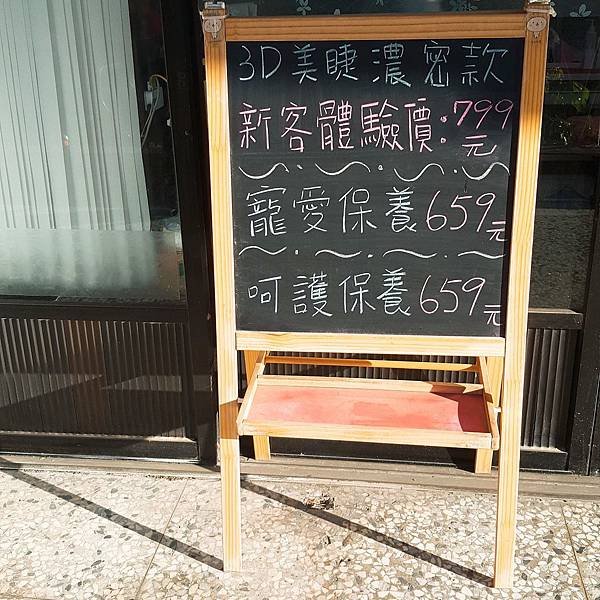 3D美睫濃密款
新客體驗價:799元
寵愛保養659元
呵護保養659元